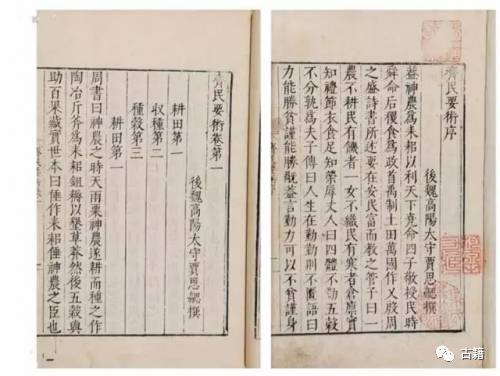 齊民要術序
後魏高陽太守賈思勰撰
蓋神農爲耒耜以利天下堯命四子敬授民時
舜命后稷食爲政首禹制土田萬國作乂殷周
之盛詩書所述要在安民富而教之管子曰一
農不耕民有饑者一女不織民有寒者倉廩實
知禮節衣食足知榮辱丈人曰四體不勤五穀
不分孰爲夫子傳曰人生在勤勤則不匱語曰
力能勝貧謹能勝禍蓋言勤力可以不貧謹身
齊民要術卷第一
後魏高陽太守賈思勰撰
耕田第一
收種第二
種穀第三
耕田第一
周書曰神農之時天雨粟神農遂耕而種之作
陶冶斤斧爲耒耜鉏耨以墾草莽然後五穀興
助百果藏實世本曰倕作耒耜倕神農之臣也
古籍